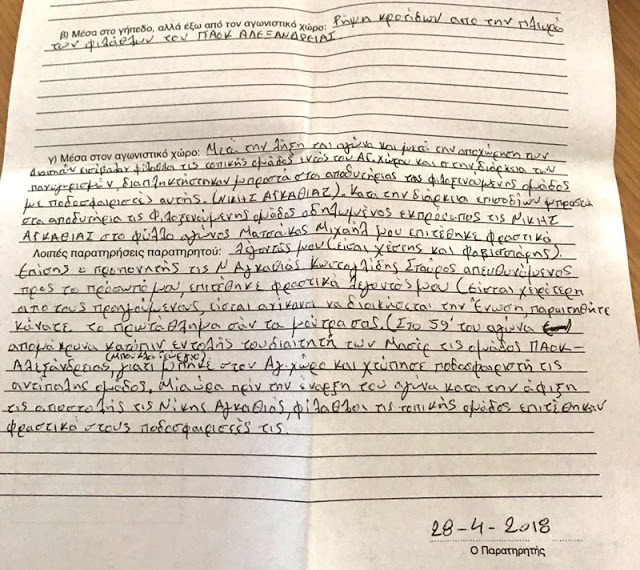 β) Μέσα στο γήπεδο, αλλά έξω από τον αγωνιστικό χώρο: Ρήψη κροτίδων απο την πλευρά
των φιλάθλων του ΠΑΟΚ ΑΛΕΞΑΝΔΡΕΙΑΣ
γ) Μέσα στον αγωνιστικό χώρο: Μετά την λήξη του αγώνα και μετά την αποχώρηση των
Διαιτητών φίλαθλοι τις τοπικής ομάδος εντός του Αγ.χώρου και στην διάρκεια των
πανηγυρισμών διαπληκτήστηκαν μπροστά στα αποδυτήρια της φιλοξενώμενης ομάδος
με ποδοσφαιριστές αυτής. (ΝΙΚΗΣ ΑΓΚΑΘΙΑΣ). Κατα την διάρκεια επισοδίων μπροστά
στα αποδυτήρια τις Φιλοξενώμενης ομάδος ο δηλωμένος εκπρόσωπος τις ΝΙΚΗΣ
ΑΓΚΑΘΙΑΣ στο φύλλο αγώνος Ματσαΐκας Μιχαήλ μου επιτέθηκε φραστικά
Λοιπές παρατηρήσεις παρατηρητού: λέγοντάς μου (είσαι χέστης και φοβισιάρης).
Επίσης ο προπονητής τις Ν Αγκαθιάς Κωσταλίδης Σταύρος απευθυνόμενος
προς το πρόσωπό μου, επιτέθηκε φραστικά λέγοντάς μου (είσται χειρότερη
απο τους προηγούμενους, είσται ανίκανοι να διοικήσεται την Ένωση, παραιτηθήτε
κάνατε το πρωτάθλημα σαν τα μούτρα σας. (Στο 59' του αγώνα
απομάκρυνα κατόπιν εντολής του διαιτητή των Μασέρ τις ομάδος ΠΑΟΚ-
Αλεξάνδρειας, γιατί μπήκε στον Αγ.χώρο και χτύπησε ποδοσφαιριστή τις
αντίπαλης ομάδος. Μία ώρα πρίν την έναρξη του αγώνα κατα την άφιξη
τις αποστολής τις Νίκης Αγκαθιάς, φίλαθλοι τις τοπικής ομάδος επιτέθηκαν
φραστικά στους ποδοσφαιριστές τις.
28-4-2018
Ο Παρατηρητής